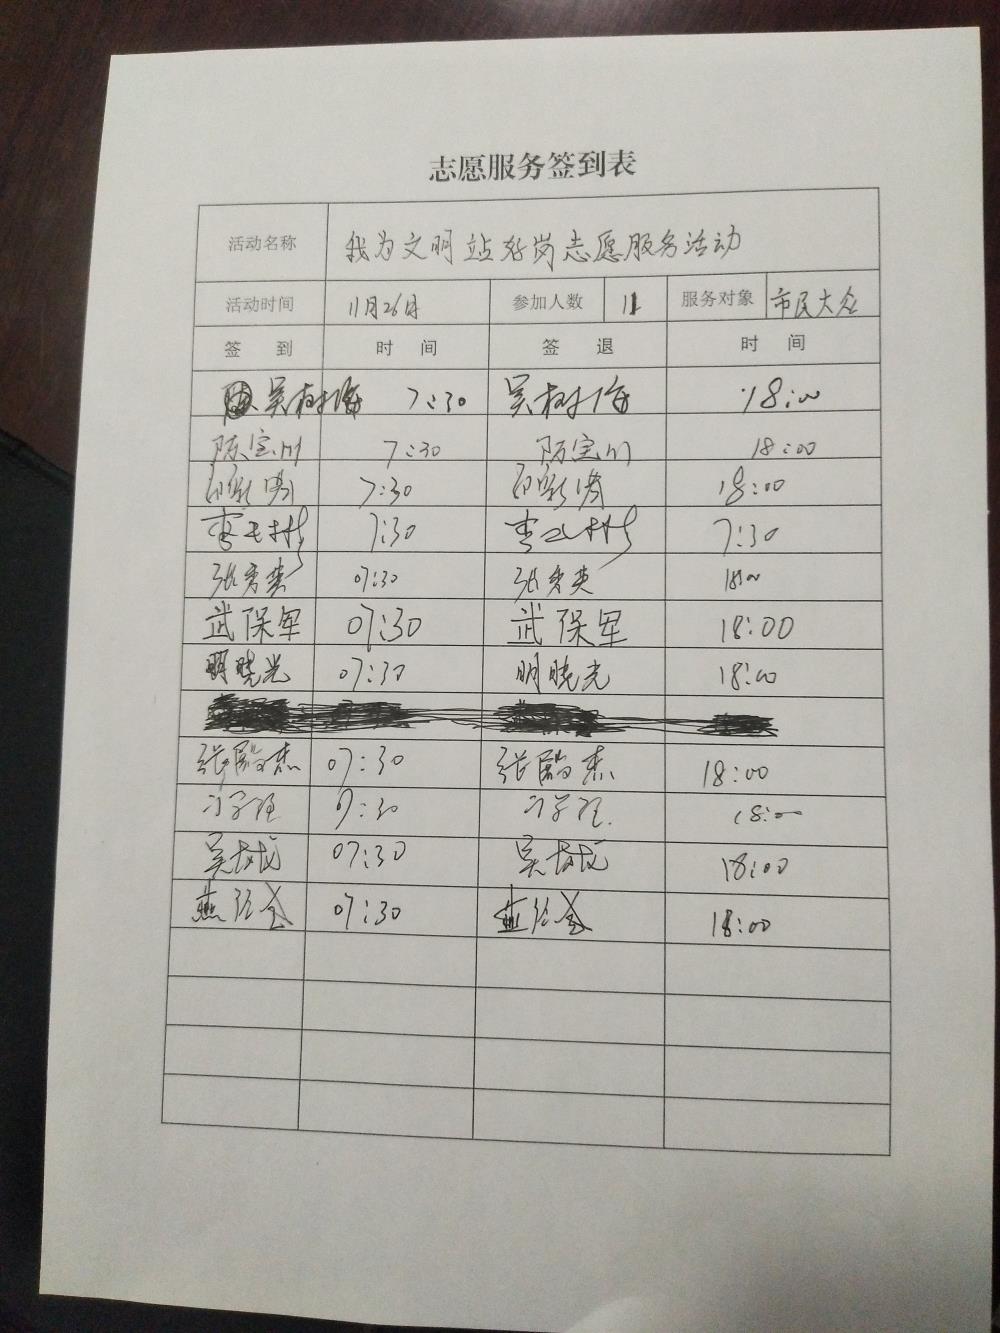 志愿服务签到表
活动名称 我为文明站好岗志愿服务活动
活动时间 11月26日 参加人数 11 服务对象 市民大众
签 到 时 间 签 退 时 间
吴树海 7:30 吴树海 18:00
陈宝川 7:30 陈宝川 18:00
7:30 18:00
7:30 7:30
张秀英 07:30 张秀英 18:00
武保军 07:30 武保军 18:00
明晓光 07:30 明晓光 18:00
07:30 18:00
7:30 18:00
07:30 18:00
07:30 18:00